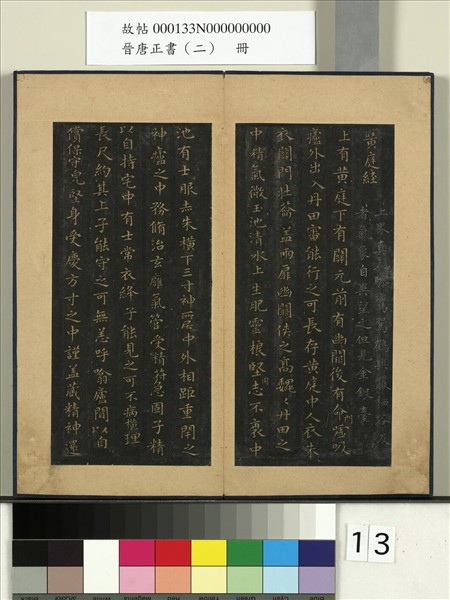 故帖 000133N000000000
晉唐正書（二） 冊
黃庭經
上
望之但見金銀臺
上有黃庭下有關元前有幽闕後有命噓吸
廬外出入丹田審能行之可長存黃庭中人衣朱
衣關門壯籥蓋兩扉幽闕俠之高魏魏丹田之
中精氣微玉池清水上生肥靈根堅志不衰中
池有士服赤朱橫下三寸神所居中外相距重閉之
神廬之中務脩治玄雍氣管受精符急固子精
以自持宅中有士常衣絳子能見之可不病橫理
長尺約其上子能守之可無恙呼噏廬閒以自
償保守完堅身受慶方寸之中謹蓋藏精神還
13